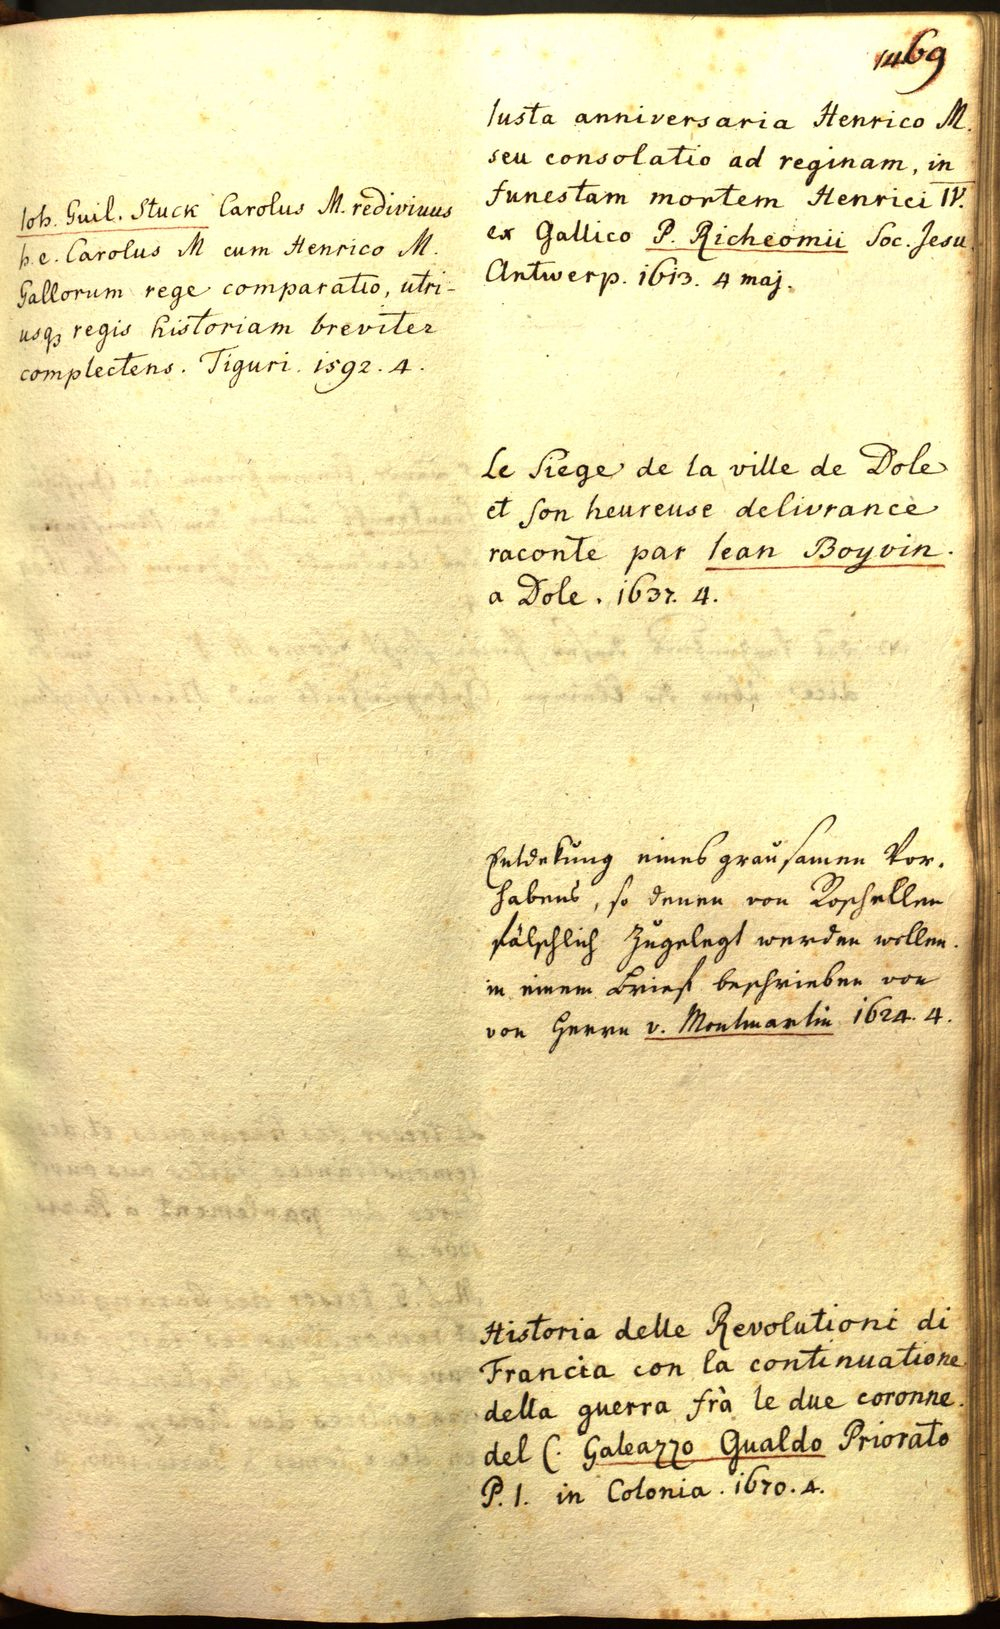 1469
Ioh. Guil. Stuck Carolus M. redivivus
h. e. Carolus M cum Henrico M.
Gallorum rege comparatio, utri-
usq; regis historiam breviter
complectens. Tiguri. 1592. 4.
Iusta anniversaria Henrico M.
seu consolatio ad reginam, in
funestam mortem Henrici IV.
ex Gallico P. Richeomii Soc. Jesu.
Antwerp. 1613. 4 maj.
Le Siege de la ville de Dole
et son heureuse delivrance
raconte par Iean Boyvin.
a Dole. 1637. 4.
Entdekung eines grausamen Vor-
habens, so denen von Roschellen
fälschlich zugelegt werden wollen.
in einem Brief beschrieben von
von Herrn v. Montmartin 1624. 4.
Historia delle Revolutioni di
Francia con la continuatione
della guerra frà le due coronne.
del C. Galeazzo Gualdo Priorato
P. 1. in Colonia. 1670. 4.